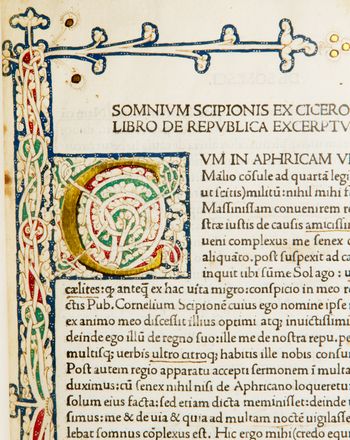 SOMNIVM SCIPIONIS EX CICERO
LIBRO DE REPVBLICA EXCERPTV
CVM IN APHRICAM VE
Mālio cōsule ad quartā legi
ut scitis)militū:nihil mihi f
Massinissam conuenirem re
stræ iustis de causis amicissi
ueni complexus me senex c
aliquāto. post suspexit ad ca
inquit tibi sūme Sol ago: u
cælites: ꝙ anteq̄ ex hac uita migro: conspicio in meo r
ctis Pub. Cornelium Scipionē cuius ego nomine ipse r
ex animo meo discessit illius optimi atq; inuictissimi
deinde ego illū de regno suo: ille me de nostra repu. pe
multisq; uerbis ultro citroq; habitis ille nobis consum
Post autem regio apparatu accepti sermonem ī multa
duximus: cū senex nihil nisi de Aphricano loqueretur
solum eius facta: sed etiam dicta meminisset: deinde
simus: me & de uia & quia ad multam noctē uigilasse
lebat somnus cōplexus est. Hic ergo mihi (credo equ